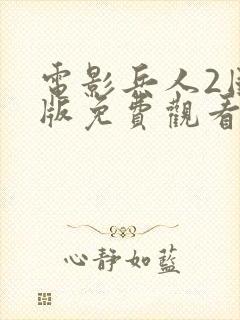 電影岳人2国
版免費觀看
心靜如藍